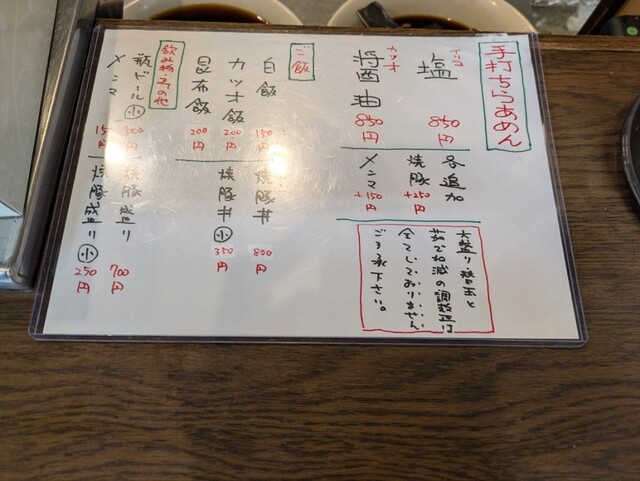 手打ちらあめん
塩
850円
カツオ
醤油
850円
各追加
焼豚
+250円
メンマ
+150円
大盛り 替玉と
茹で加減の調整は
全てしておりません
ご了承下さい。
ご飯
白飯
150円
カツオ飯
200円
昆布飯
200円
焼豚丼
800円
焼豚丼 小
350円
飲み物・その他
瓶ビール 小
メンマ
焼豚盛り
700円
焼豚盛り 小
250円